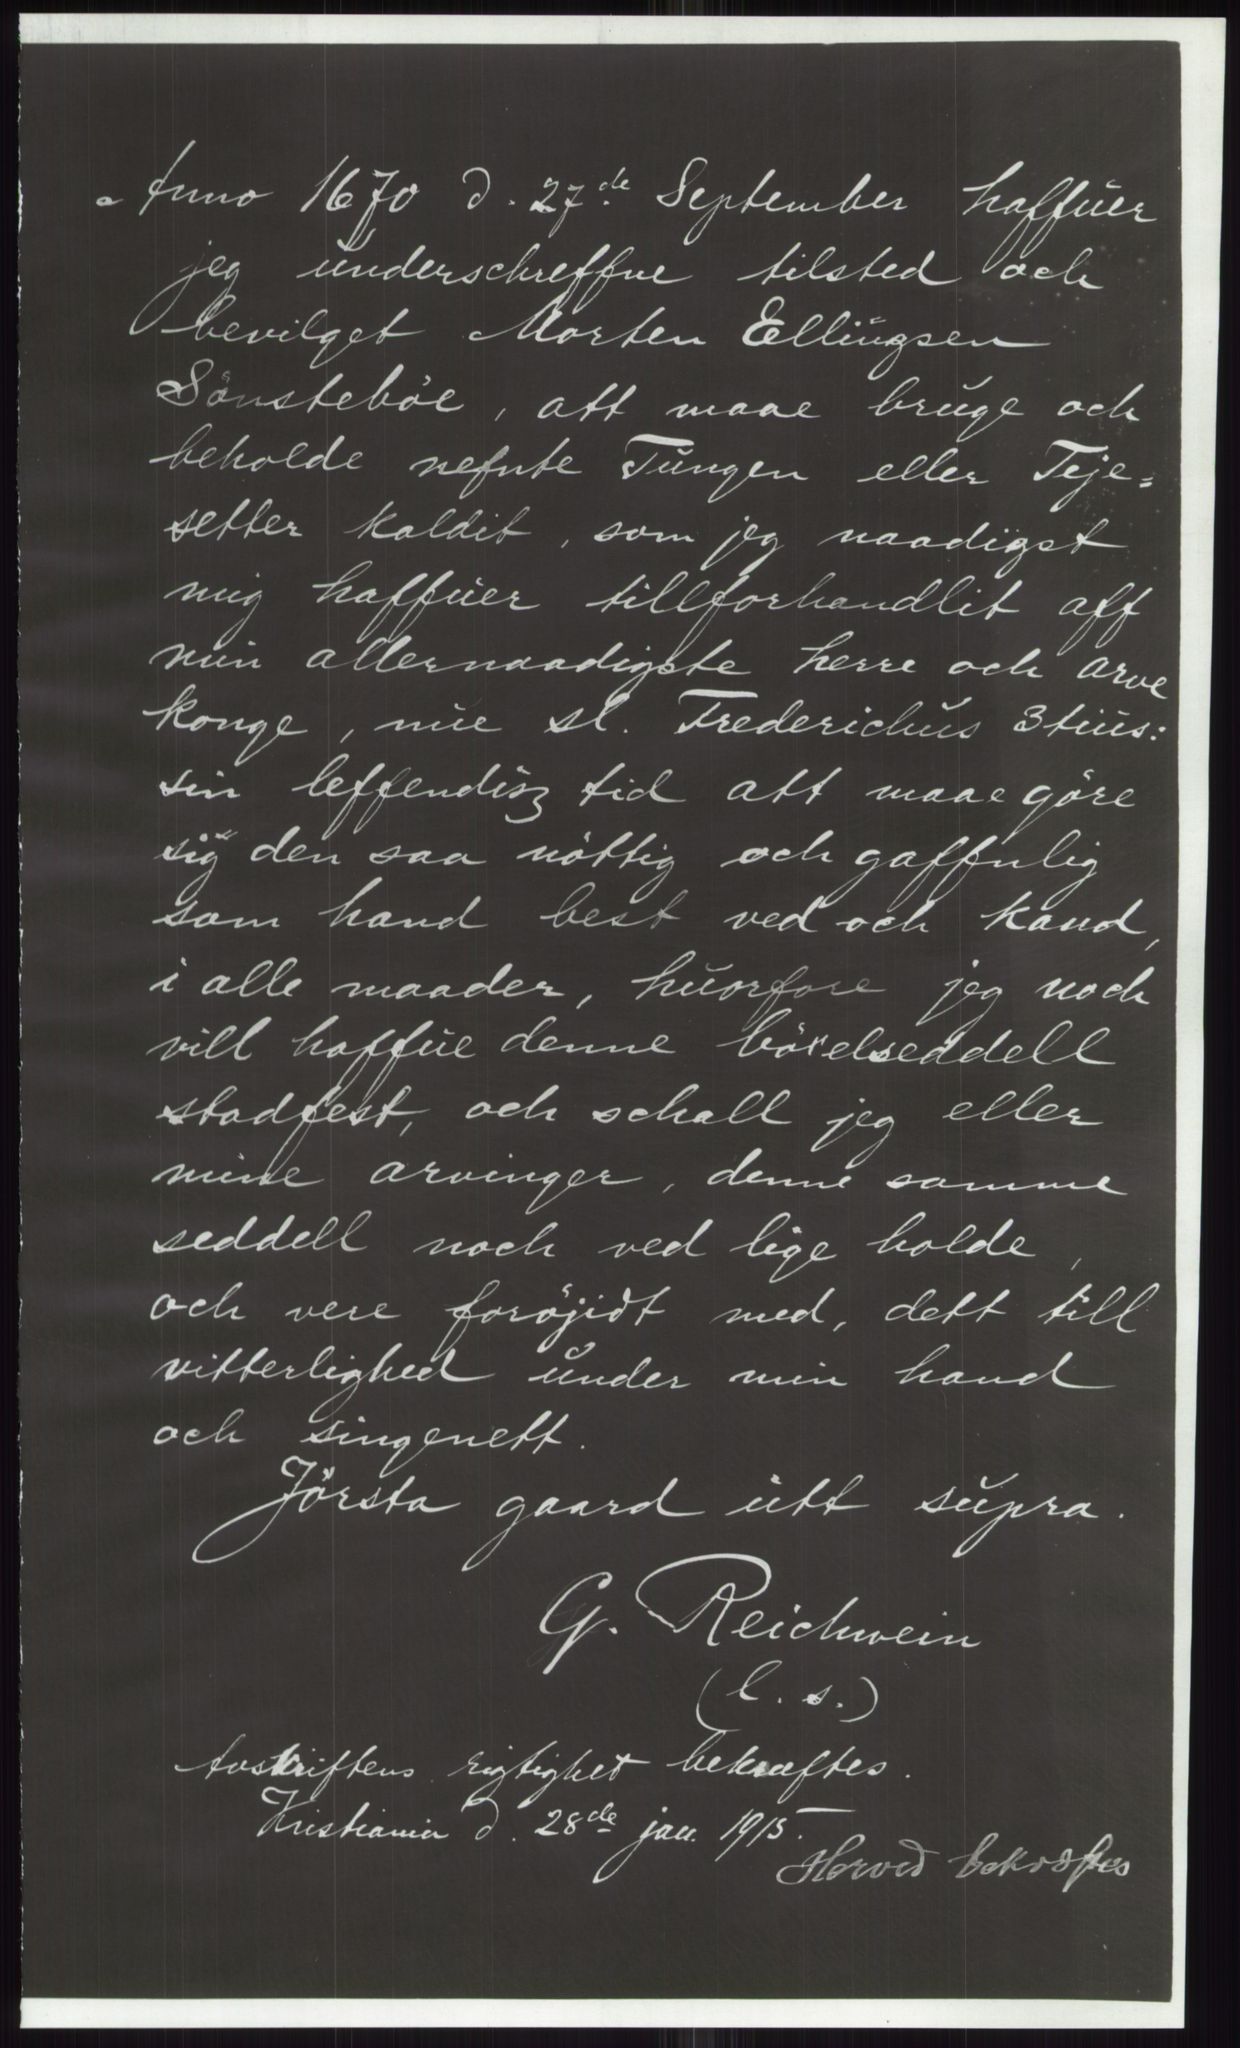 Anno 1670 d. 27de September haffuer
jeg underschreffne tilsted och
bevilget Morten Ellingsen
Sönsteböe, att maae bruge och
beholde nefnte Tungen eller Teje=
setter kaldit, som jeg naadigst
mig haffuer tillforhandlit aff
min allernaadigste herre och arve
konge, nue sl. Frederichus 3tius:
sin leffendisz tid att maae göre
sig den saa nöttig och gaffnlig
som hand best ved och kand,
i alle maader, huorfore jeg noch
vill haffue denne böxelseddell
stadfest, och schall jeg eller
mine arvinger, denne samme
seddell noch ved lige holde,
och vere foröjidt med, dett till
vitterlighed under min hand
och singenett.
Jörsta gaard utt supra.
G. Reichwein
(l. s.)
Avskriftens rigtighet bekræftes.
Kristiania d. 28de jan. 1915.
Horved bekræftes